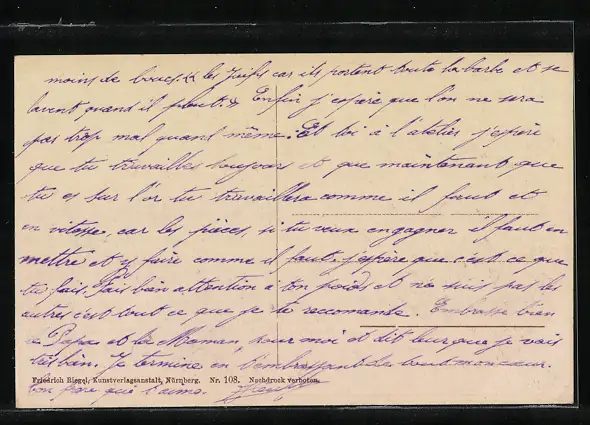 moins de boues. & les Juifs car ils portent toute la barbe et se
lavent quand il pleut. & Enfin j'espère que l'on ne sera
pas trop mal quand même. Et toi à l'atelier j'espère
que tu travailles toujours et que maintenant, que
tu es sur l'or tu travaillera comme il faut et
en vitesse, car les pièces, si tu veux en gagner il faut en
mettre et y faire comme il faut. j'espère que c'est ce que
tu fais. Fais bien attention à ton poids et ne suis pas les
autres c'est tout ce que je te reccomande. Embrasse bien
le Papa et la Maman, pour moi et dit leur que je vais
très bien. Je termine en t'embrassant de tout mon cœur.
Friedrich Riegel, Kunstverlagsanstalt, Nürnberg. Nr. 108. Nachdruck verboten.
Ton frère qui t'aime.